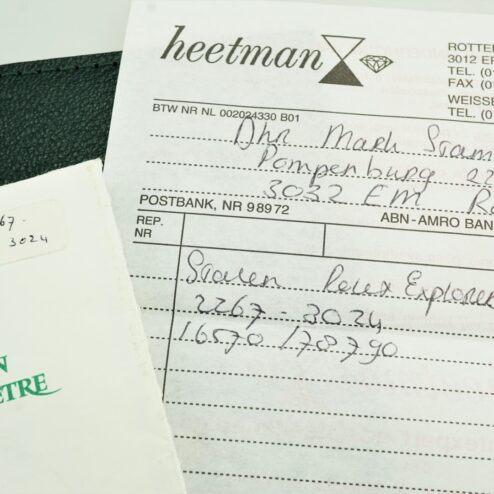 heetman
ROTTER
3012 EP
TEL. (0
FAX (0
WEISSE
TEL. (0
BTW NR NL 002024330 B01
Dhr Mark Stam
Pompenburg 22
3032 EM R
POSTBANK, NR 98972
ABN-AMRO BAN
REP.
NR
Stalen Rolex Explorer
2267 - 3024
16570 / 78790
67 -
3024
N
ETRE